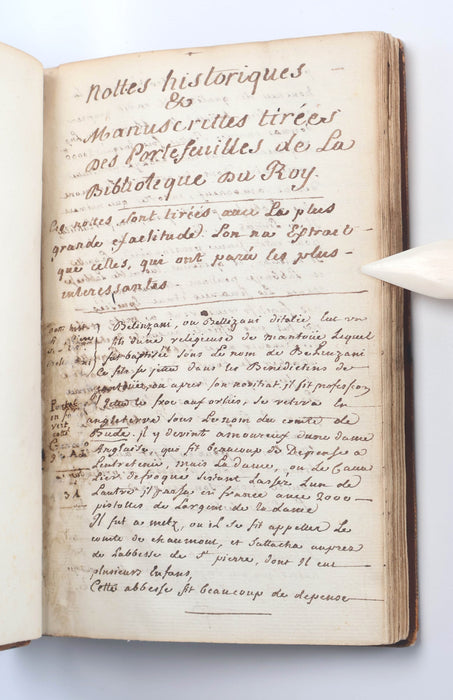 Nottes historiques
&
Manuscrittes tirées
Des Portefeuilles de La
Biblioteque Du Roy.
Ces nottes sont tirées avec La plus
grande exactitude L'on na Extrait
que celles, qui ont paru les plus
interessantes.
Belinzani, ou Bellizani d'italie eut un
fils d'une religieuse de mantoüe Lequel
fut baptisé sous le nom de
Ce fils se jetta dans les Benedictins de
mantoüe, ou apres son novitiat il fit profession
il jetta le froc aux orties, se retira En
angleterre sous Le nom du comte de
Bude. il y devint amoureux d'une dame
Anglaise, qui fit beaucoup de Depense a
L'entretenir, mais La dame, ou Le
defroqué s'etant Lassés L'un de
L'autre il passa en france avec 2000
pistolles de L'argent de la dame
Il fut a metz, ou il se fit appeller Le
comte de chaumont, et s'attacha aupres
de Labbesse de St. pierre, dont Il eut
plusieurs Enfans,
Cette abbesse fit beaucoup de depense
31